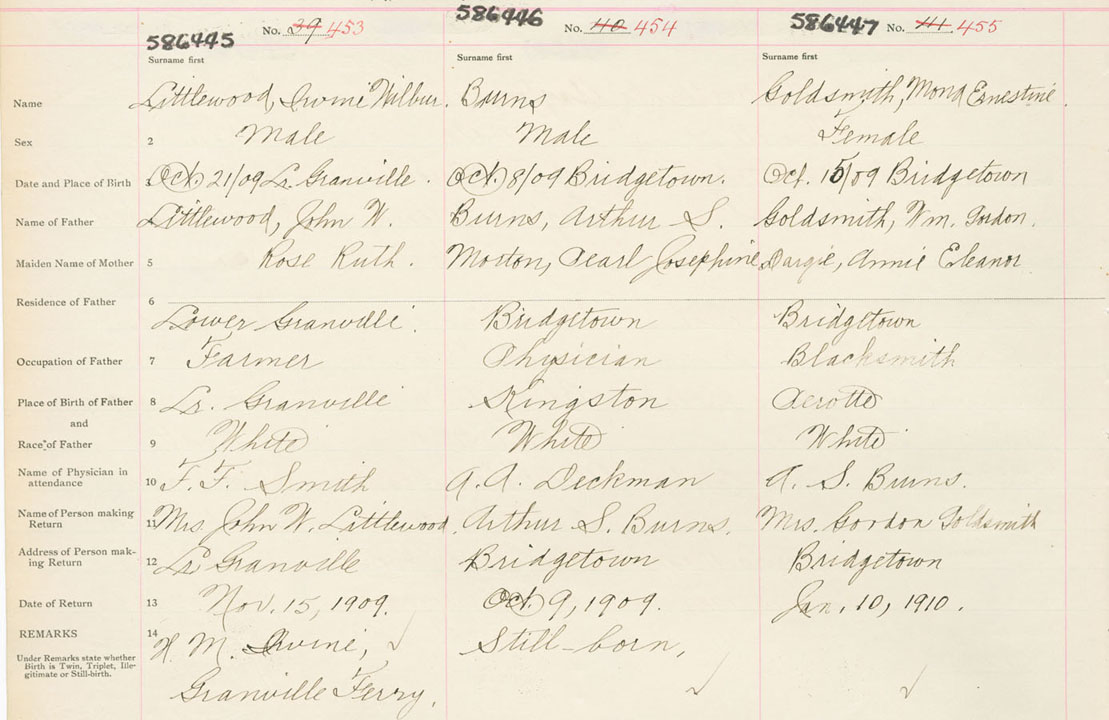 586445 No. 39 453 586446 No. 40 454 586447 No. 41 455
Surname first Surname first Surname first
Name Littlewood, Irvine Wilbur. Burns Goldsmith, Mona Ernestine.
Sex 2 Male Male Female
Date and Place of Birth 3 Oct. 21/09 Lr. Granville. Oct. 8/09 Bridgetown. Oct. 15/09 Bridgetown
Name of Father Littlewood, John W. Burns, Arthur S. Goldsmith, Wm. Gordon.
Maiden Name of Mother 5 Rose Ruth. Morton, Pearl Josephine Dargie, Annie Eleanor
Residence of Father 6
Lower Granville. Bridgetown Bridgetown
Occupation of Father 7 Farmer Physician Blacksmith
Place of Birth of Father 8 Lr. Granville Kingston
and
Race of Father 9 White White White
Name of Physician in attendance 10 F. F. Smith A. A. Deckman A. S. Burns.
Name of Person making Return 11 Mrs. John W. Littlewood. Arthur S. Burns. Mrs. Gordon Goldsmith
Address of Person mak-
ing Return 12 Lr. Granville Bridgetown Bridgetown
Date of Return 13 Nov. 15, 1909. Oct. 9, 1909. Jan. 10, 1910.
REMARKS 14 H. M. Irvine, Still-born,
Under Remarks state whether
Birth is Twin, Triplet, Ille-
gitimate or Still-birth.
Granville Ferry.